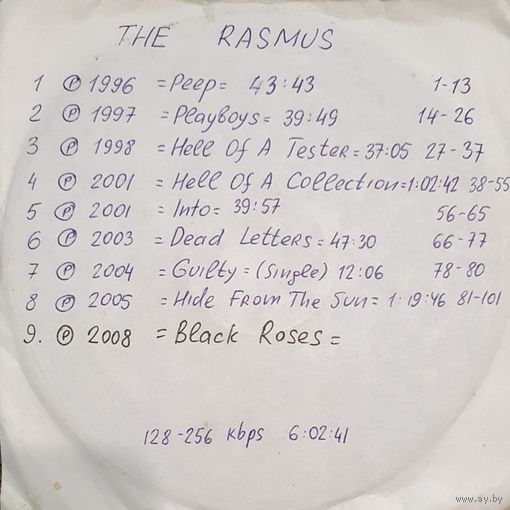 THE RASMUS
1 Ⓟ 1996 =Peep= 43:43 1-13
2 Ⓟ 1997 =Playboys= 39:49 14-26
3 Ⓟ 1998 =Hell Of A Tester=37:05 27-37
4 Ⓟ 2001 =Hell Of A Collection=1:02:42 38-55
5 Ⓟ 2001 =Into= 39:57 56-65
6 Ⓟ 2003 =Dead Letters=47:30 66-77
7 Ⓟ 2004 =Guilty=(Single) 12:06 78-80
8 Ⓟ 2005 =Hide From The Sun= 1:19:46 81-101
9. Ⓟ 2008 =Black Roses=
128-256 kbps 6:02:41
www.ay.by